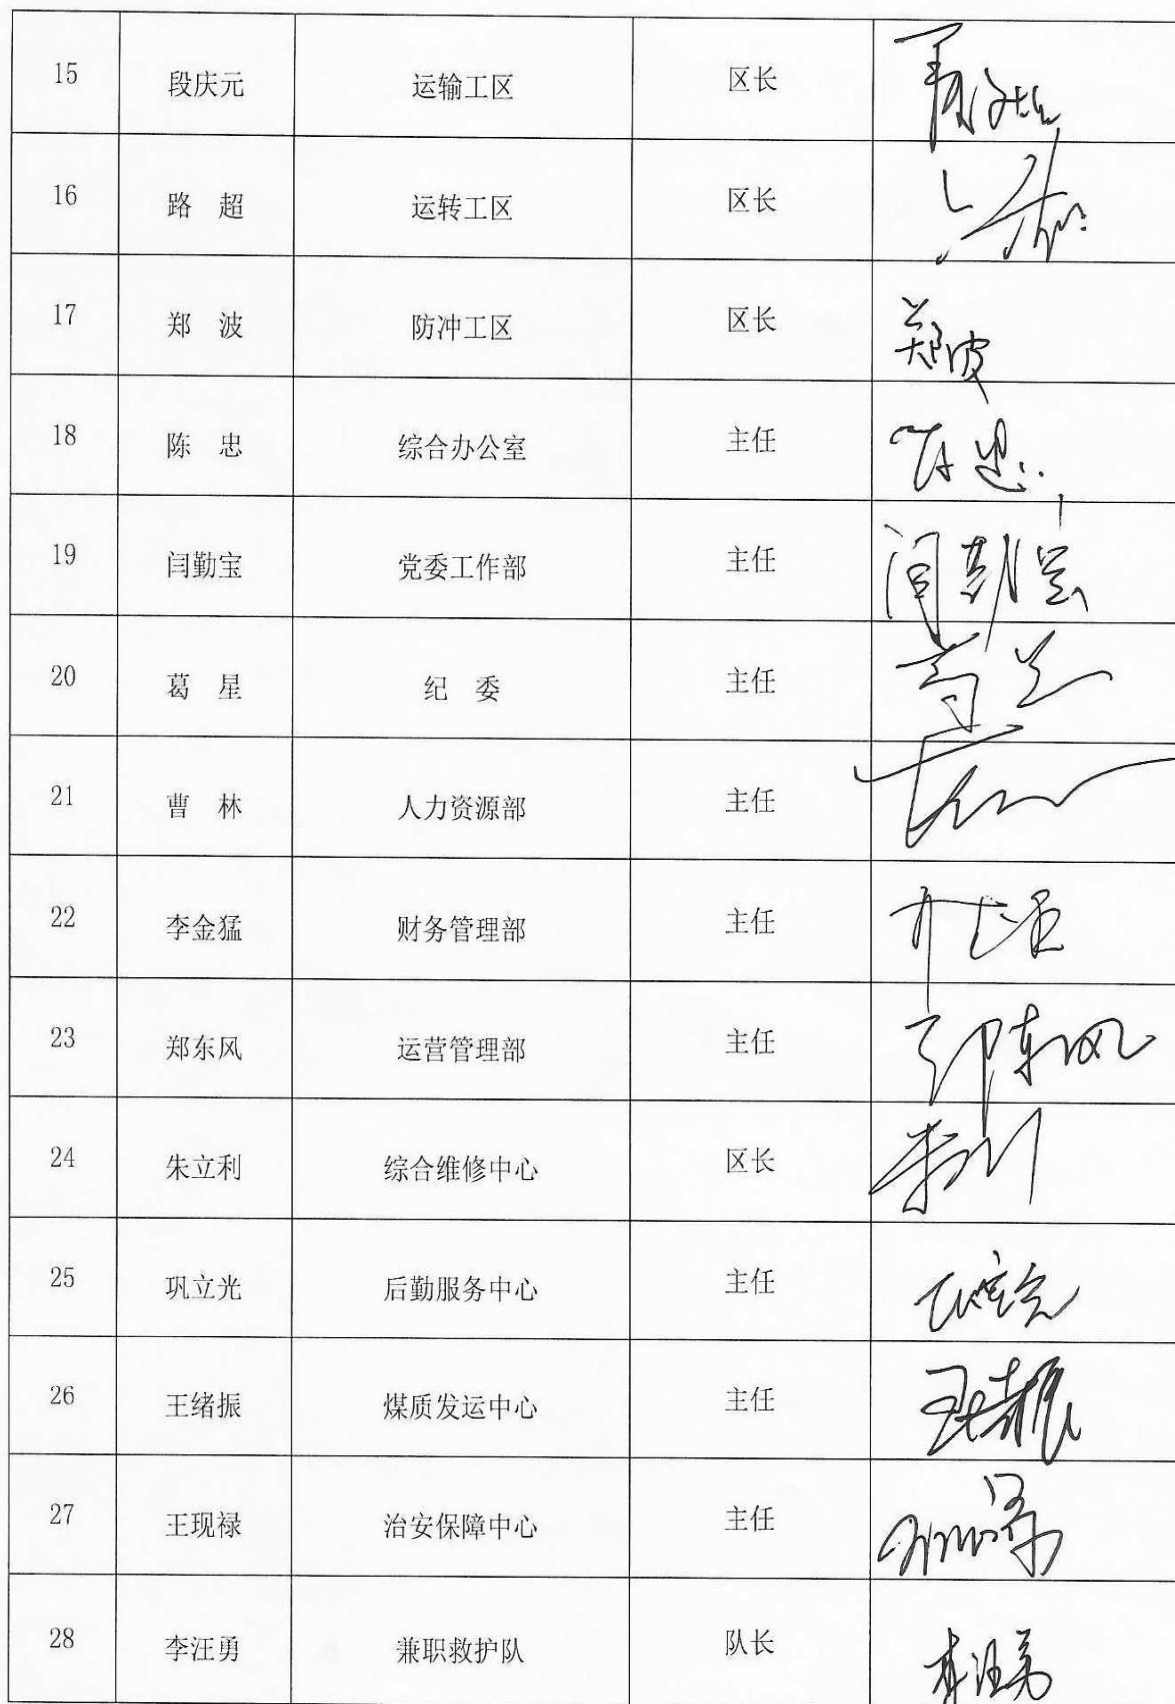 15 段庆元 运输工区 区长
16 路 超 运转工区 区长
17 郑 波 防冲工区 区长 郑波
18 陈 忠 综合办公室 主任 陈忠
19 闫勤宝 党委工作部 主任 闫勤宝
20 葛 星 纪 委 主任
21 曹 林 人力资源部 主任
22 李金猛 财务管理部 主任
23 郑东风 运营管理部 主任 郑东风
24 朱立利 综合维修中心 区长
25 巩立光 后勤服务中心 主任
26 王绪振 煤质发运中心 主任 王绪振
27 王现禄 治安保障中心 主任
28 李汪勇 兼职救护队 队长 李汪勇